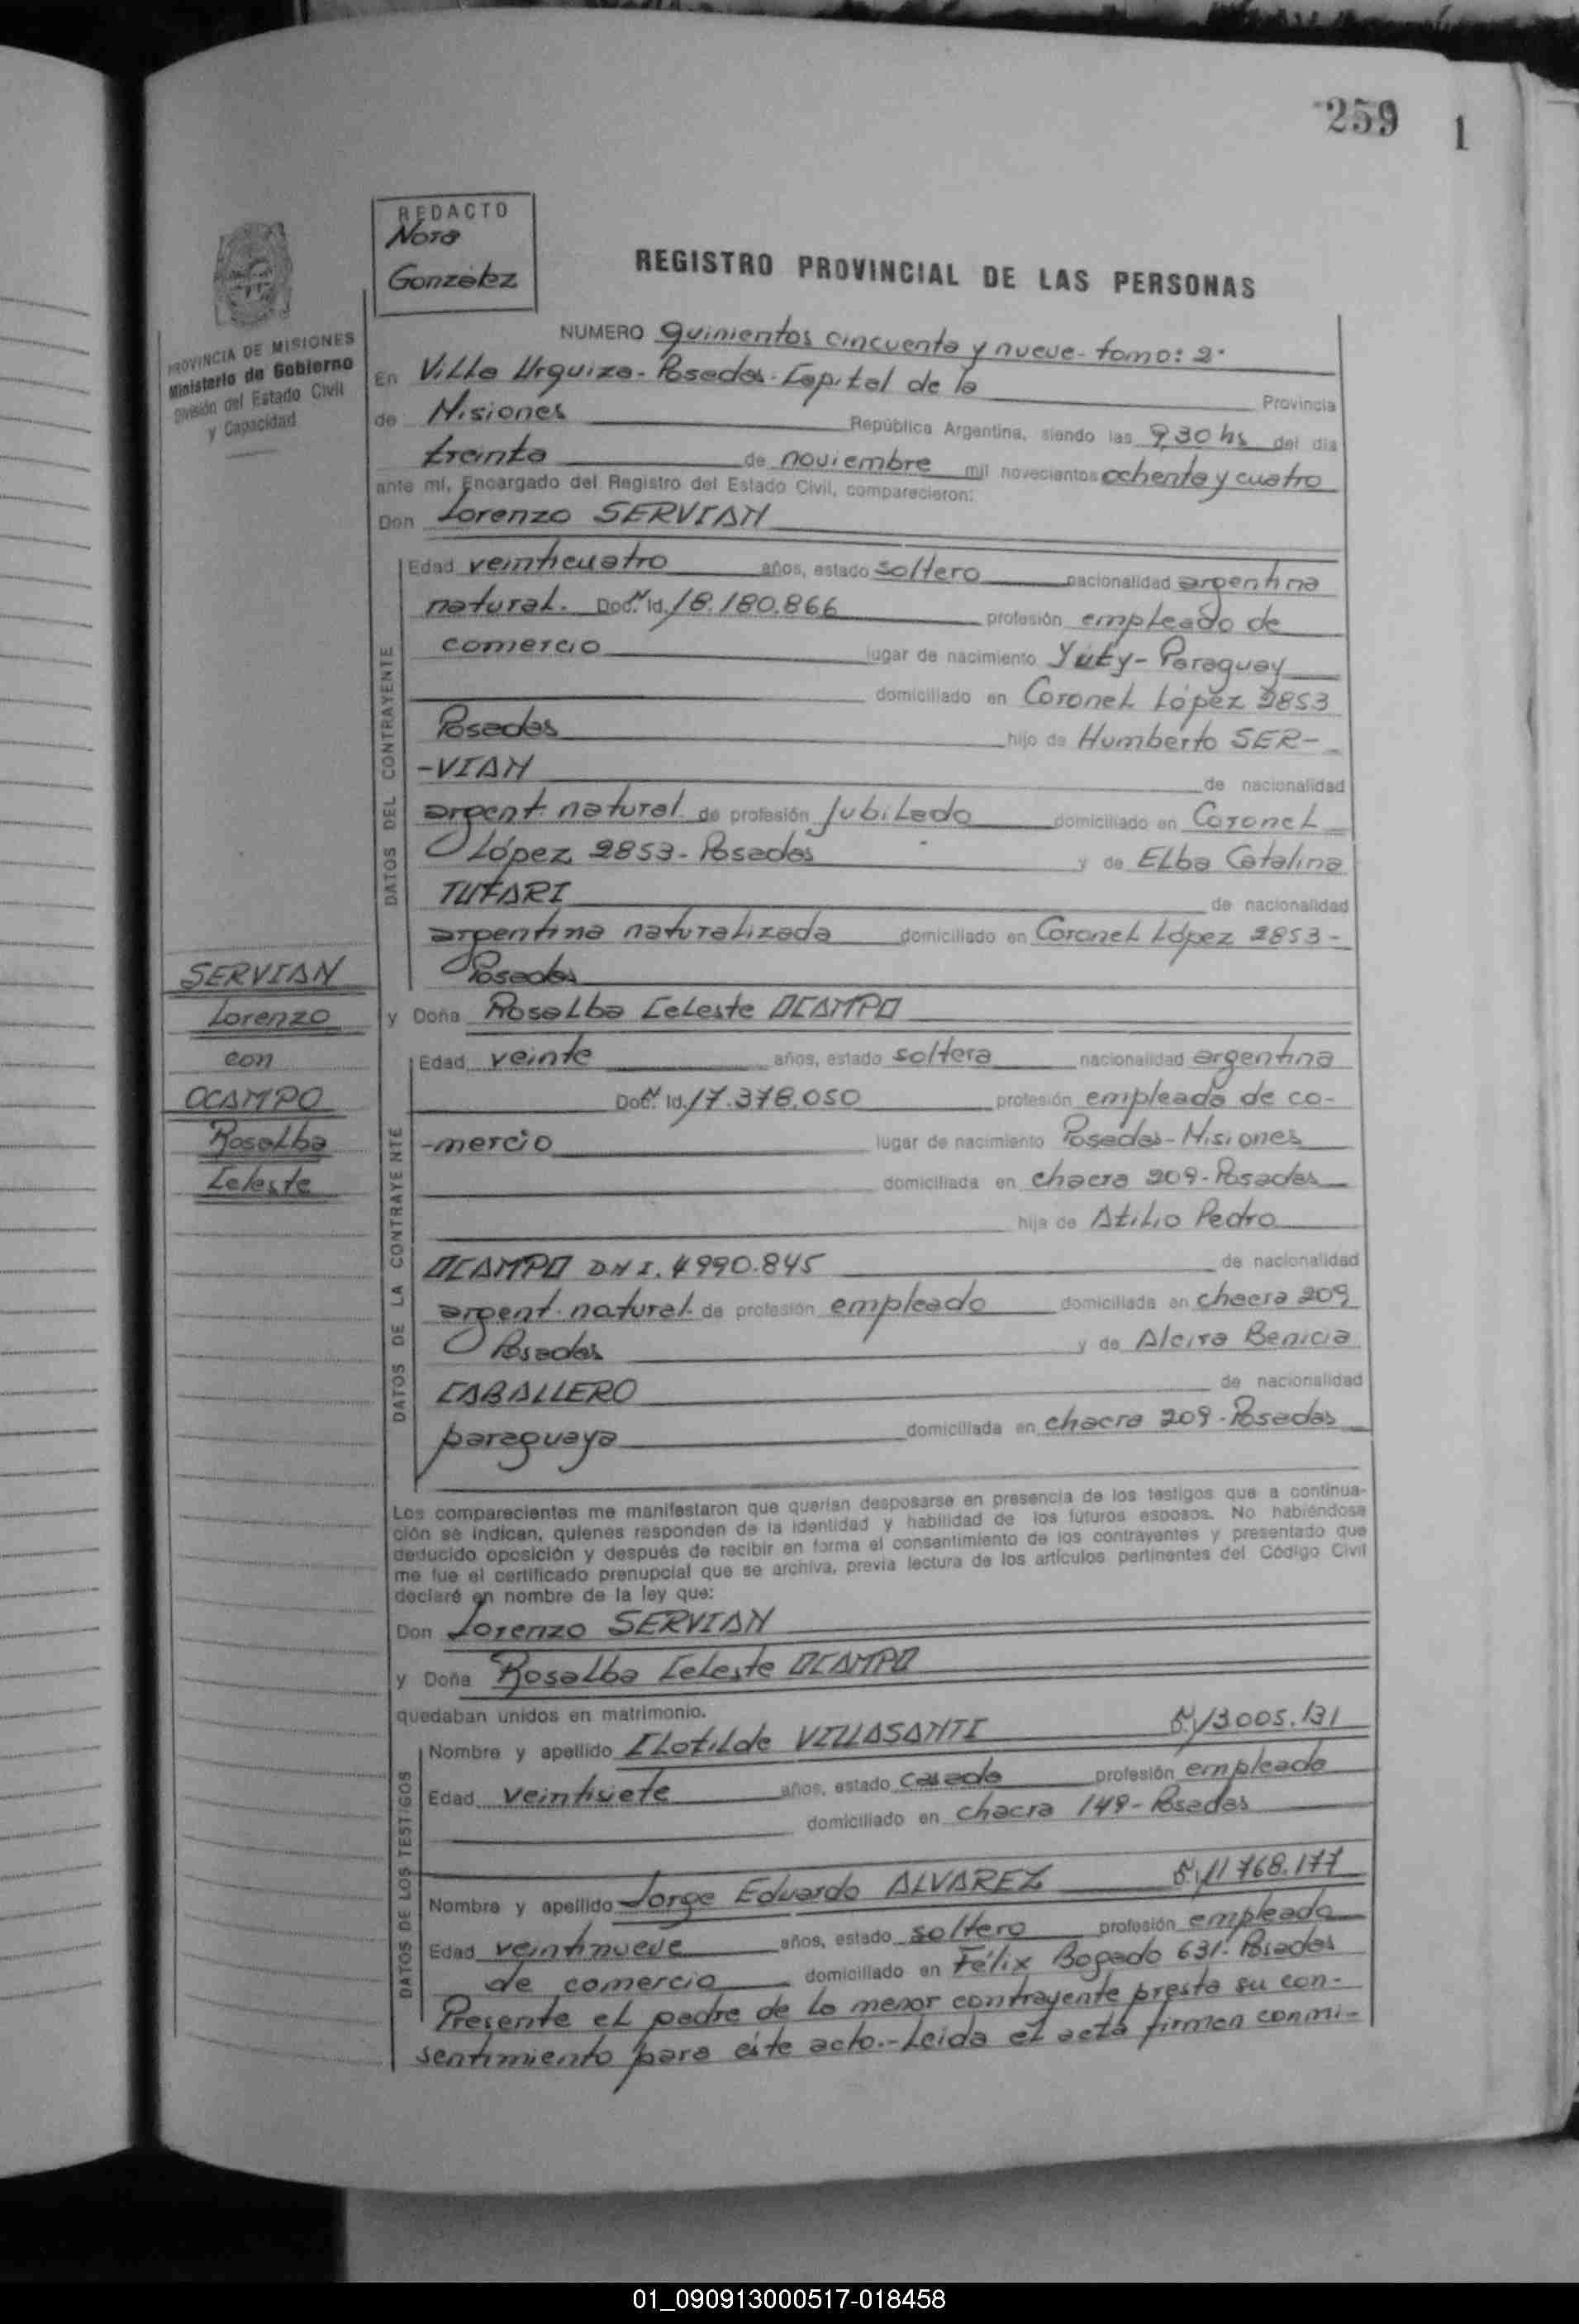 259
1
REDACTO
Nora
González
REGISTRO PROVINCIAL DE LAS PERSONAS
PROVINCIA DE MISIONES
Ministerio de Gobierno
División del Estado Civil
y Capacidad
NUMERO quinientos cincuenta y nueve- tomo: 2°
En Villa Urquiza- Posadas- Capital de la Provincia
de Misiones República Argentina, siendo las 9,30 hs del día
treinta de noviembre mil novecientos ochenta y cuatro
ante mí, Encargado del Registro del Estado Civil, comparecieron:
Don Lorenzo SERVIAN
DATOS DEL CONTRAYENTE
Edad veinticuatro años, estado soltero nacionalidad argentina
natural. Doc. Id. N° 18.180.866 profesión empleado de
comercio lugar de nacimiento Yuty- Paraguay
domiciliado en Coronel López 2853
Posadas hijo de Humberto SER-
-VIAN de nacionalidad
argent. natural de profesión Jubilado domiciliado en Coronel
López 2853- Posadas y de Elba Catalina
TUFARI de nacionalidad
argentina naturalizada domiciliado en Coronel López 2853-
Posadas
SERVIAN
Lorenzo
con
OCAMPO
Rosalba
Celeste
y Doña Rosalba Celeste OCAMPO
DATOS DE LA CONTRAYENTE
Edad veinte años, estado soltera nacionalidad argentina
Doc. Id. N° 17.378.050 profesión empleada de co-
-mercio lugar de nacimiento Posadas- Misiones
domiciliada en chacra 209- Posadas
hija de Atilio Pedro
OCAMPO DNI. 4990.845 de nacionalidad
argent. natural. de profesión empleado domiciliada en chacra 209
Posadas y de Alcira Benicia
CABALLERO de nacionalidad
paraguaya domiciliada en chacra 209- Posadas
Los comparecientes me manifestaron que querían desposarse en presencia de los testigos que a continua-
ción se indican, quienes responden de la identidad y habilidad de los futuros esposos. No habiéndose
deducido oposición y después de recibir en forma el consentimiento de los contrayentes y presentado que
me fue el certificado prenupcial que se archiva, previa lectura de los artículos pertinentes del Código Civil
declaré en nombre de la ley que:
Don Lorenzo SERVIAN
y Doña Rosalba Celeste OCAMPO
quedaban unidos en matrimonio.
DATOS DE LOS TESTIGOS
Nombre y apellido Clotilde VILLASANTI 13005.131
Edad veintisiete años, estado casada profesión empleada
domiciliado en chacra 149- Posadas
Nombre y apellido Jorge Eduardo ALVAREZ 11768.177
Edad veintinueve años, estado soltero profesión empleado
de comercio domiciliado en Félix Bogado 631- Posadas
Presente el padre de la menor contrayente presta su con-
sentimiento para éste acto.- Leida el acta firman conmi-
01_090913000517-018458